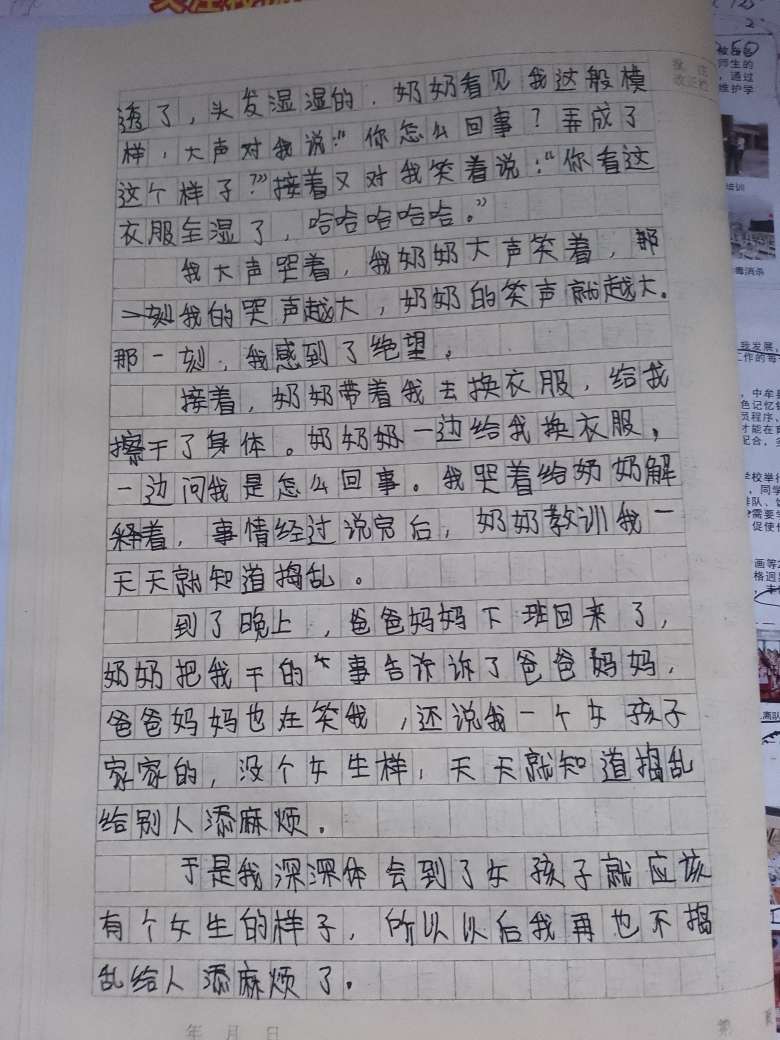 透了，头发湿湿的．奶奶看见我这般模
样，大声对我说：“你怎么回事？弄成了
这个样子？”接着又对我笑着说：“你看这
衣服全湿了，哈哈哈哈哈。”
我大声哭着，我奶奶大声笑着，那
一刻我的哭声越大，奶奶的笑声就越大。
那一刻，我感到了绝望．
接着，奶奶带着我去换衣服，给我
擦干了身体。奶奶奶一边给我换衣服，
一边问我是怎么回事。我哭着给奶奶解
释着，事情经过说完后，奶奶教训我一
天天就知道捣乱。
到了晚上，爸爸妈妈下班回来了，
奶奶把我干的事告诉诉了爸爸妈妈，
爸爸妈妈也在笑我，还说我一个女孩子
家家的，没个女生样，天天就知道捣乱
给别人添麻烦．
于是我深深体会到了女孩子就应该
有个女生的样子，所以以后我再也不捣
乱给人添麻烦了。
年 月 日
第
培训
毒消杀
我发展，
工作的每
，中牟县
色记忆
员程序，
才能在
配合，
学校举行
，同学
排队、
需要
促使
画等
格迥
离队
师生的
，通过
维护学